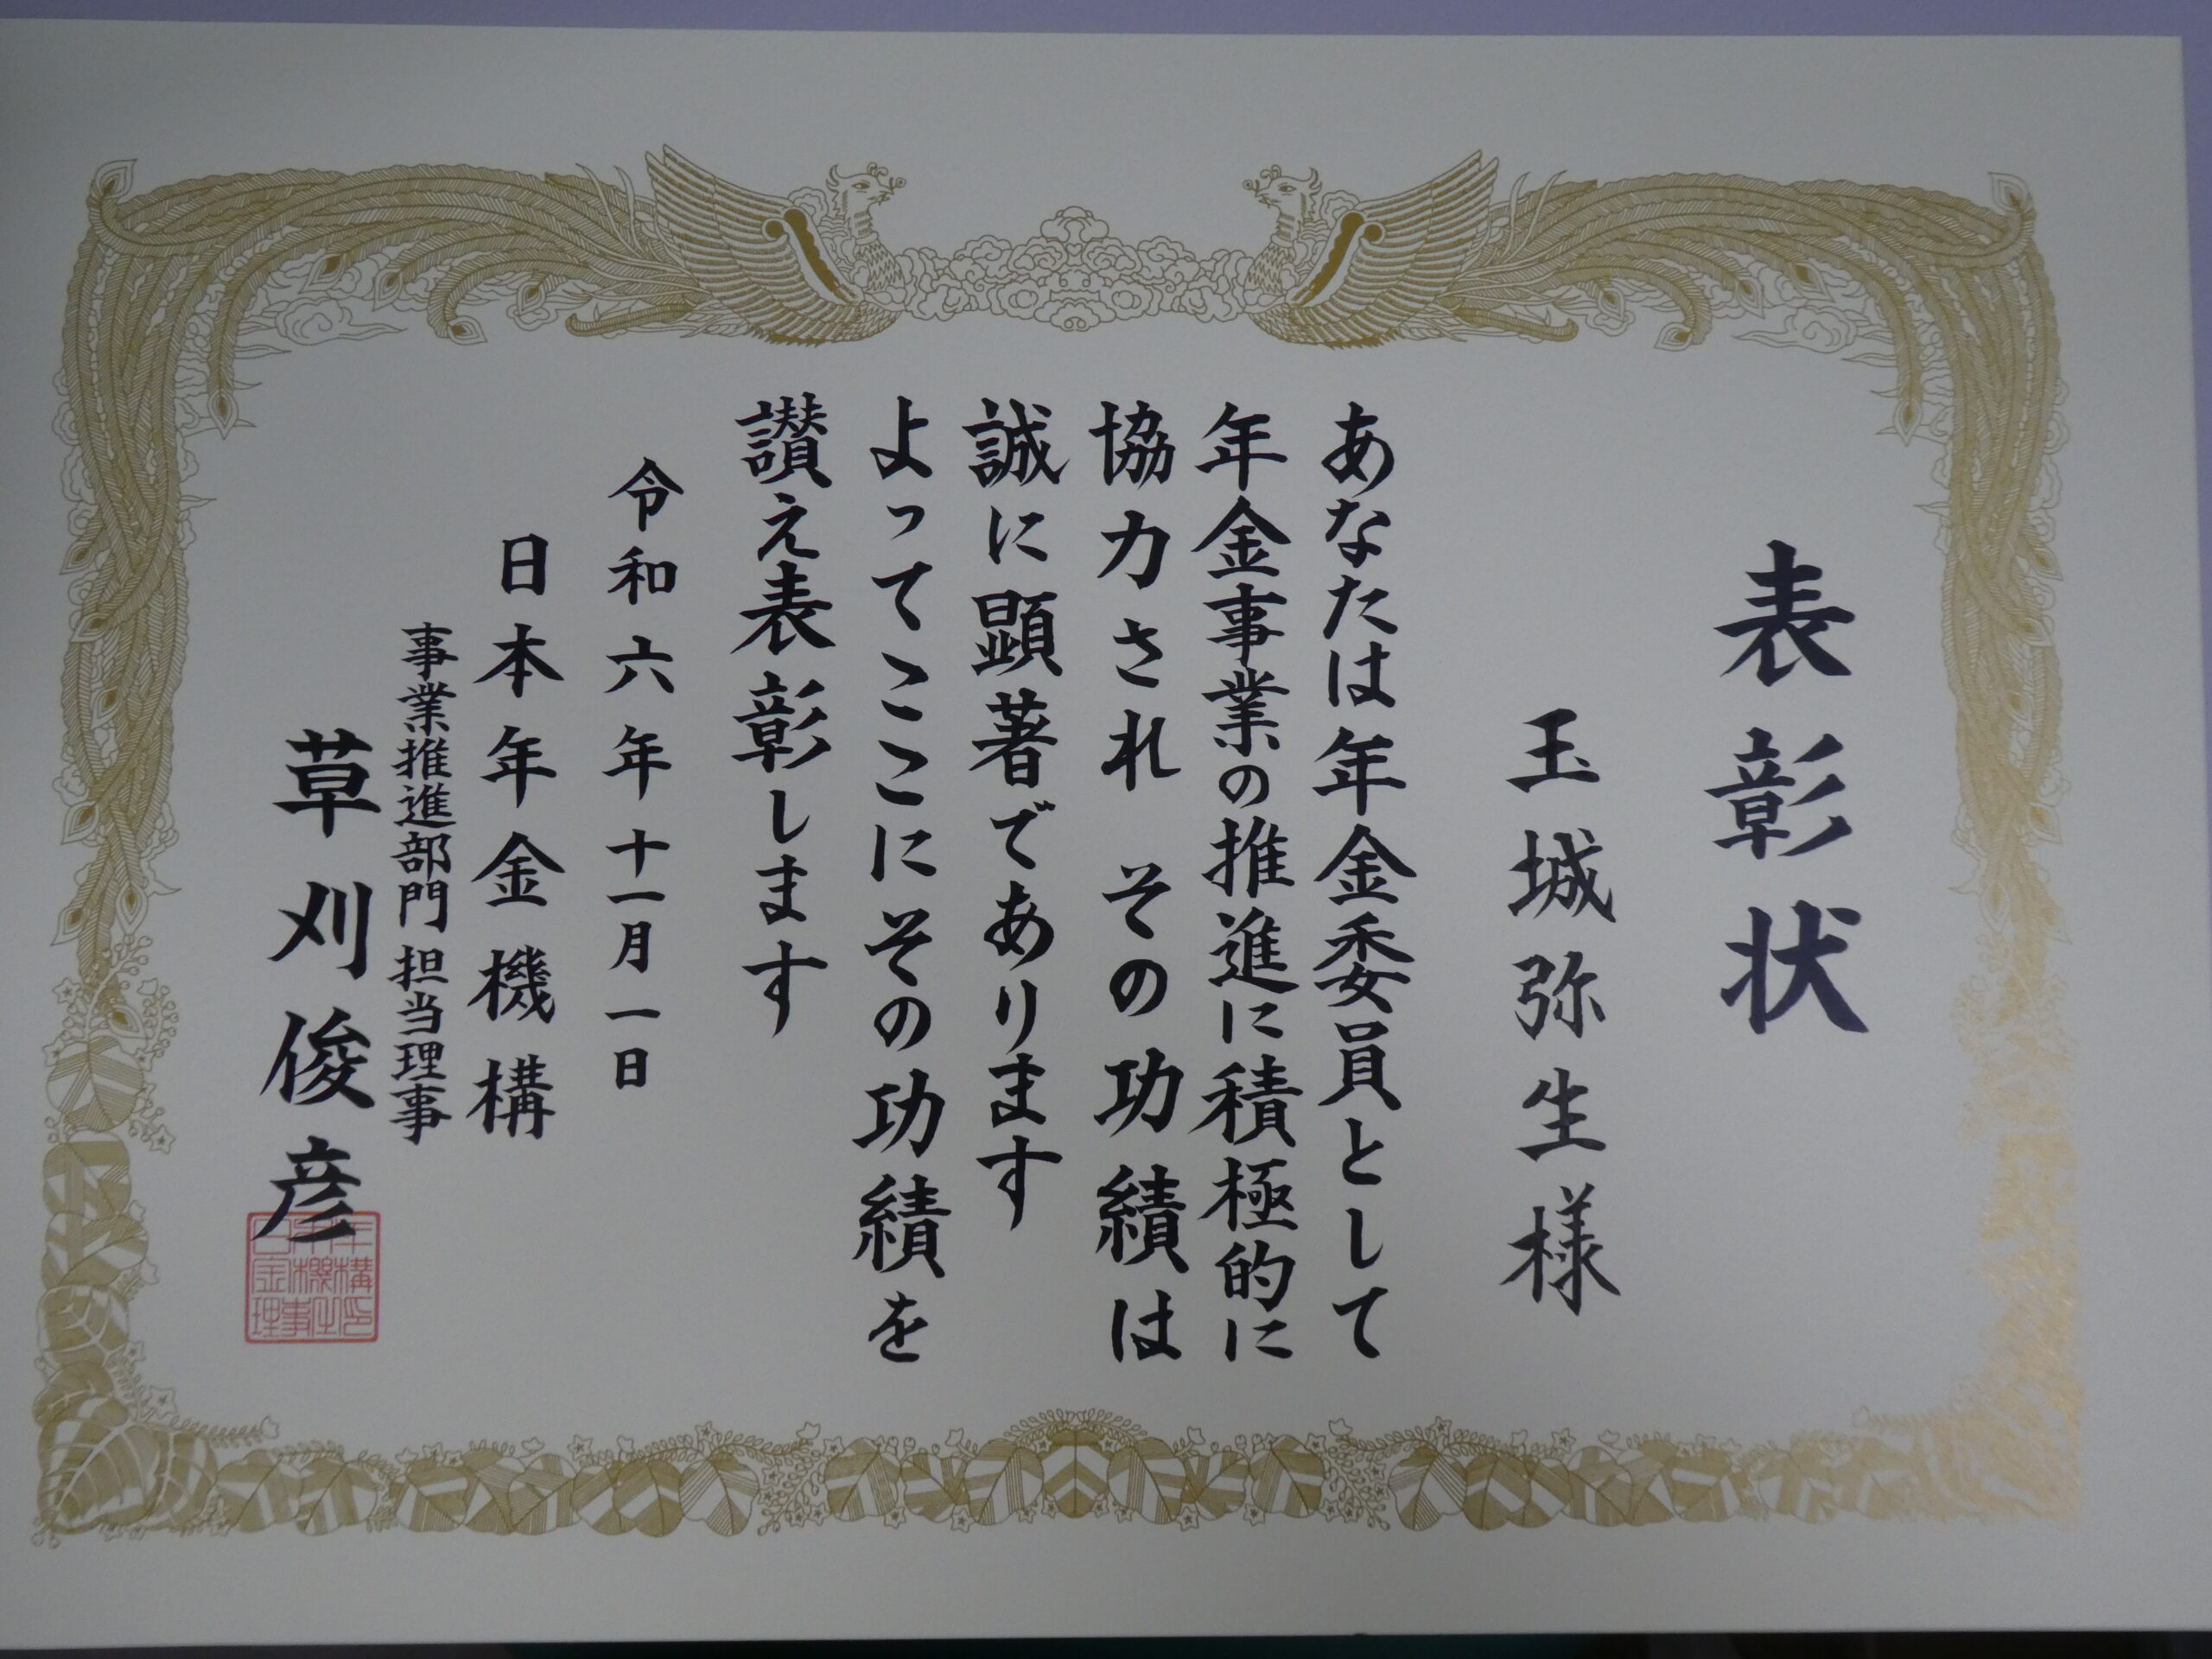 表彰状
玉城弥生様
あなたは年金委員として
年金事業の推進に積極的に
協力され その功績は
誠に顕著であります
よってここにその功績を
讃え表彰します
令和六年十一月一日
日本年金機構
事業推進部門 担当理事
草刈俊彦